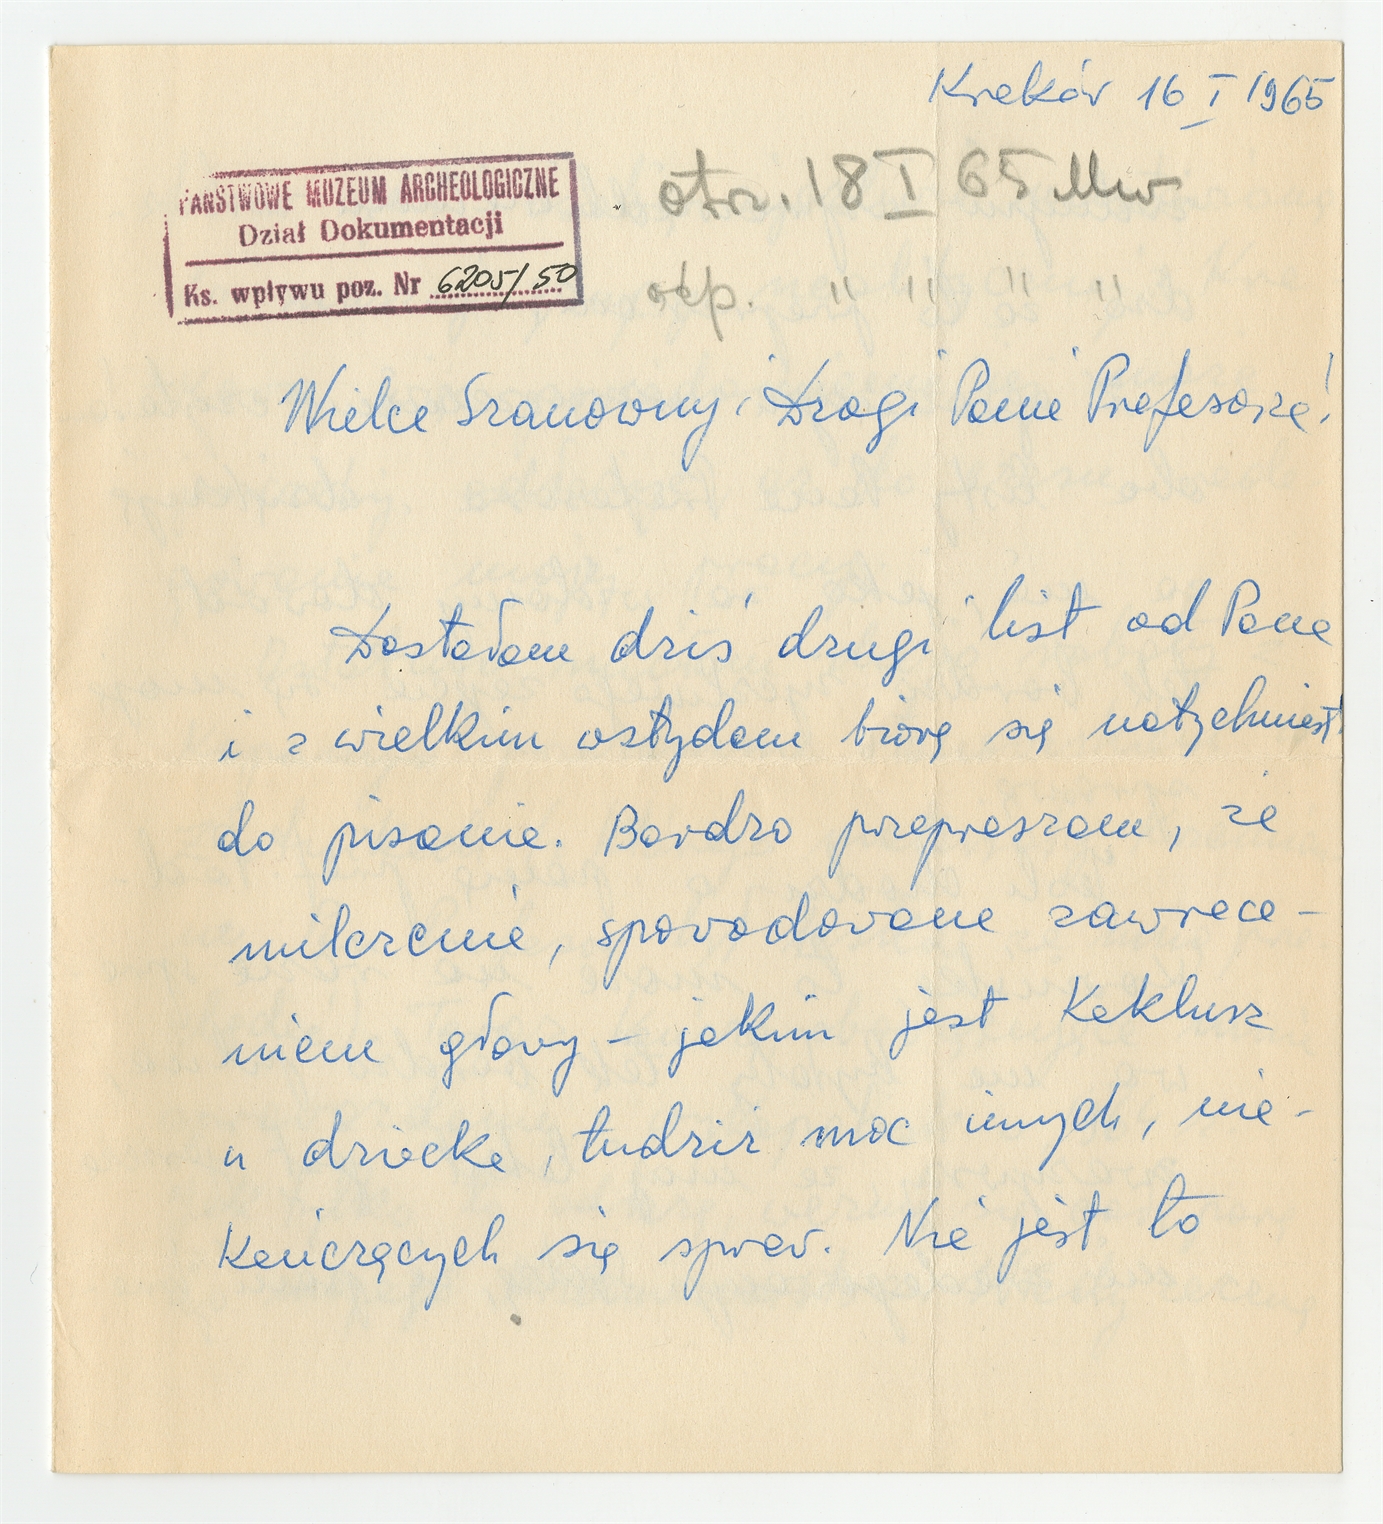 Kraków 16 I 1965
PAŃSTWOWE MUZEUM ARCHEOLOGICZNE
Dział Dokumentacji
Ks. wpływu poz. Nr 6205/50
otrz. 18 I 65 Mw
odp. " " " "
Wielce Szanowny i Drogi Panie Profesorze!
Dostałam dziś drugi list od Pana
i z wielkim wstydem biorę się natychmiast
do pisania. Bardzo przepraszam, za
milczenie, spowodowane zawraca-
niem głowy – jakim jest Koklusz
u dziecka, tudzież moc innych, nie-
kończących się spraw. Nie jest to